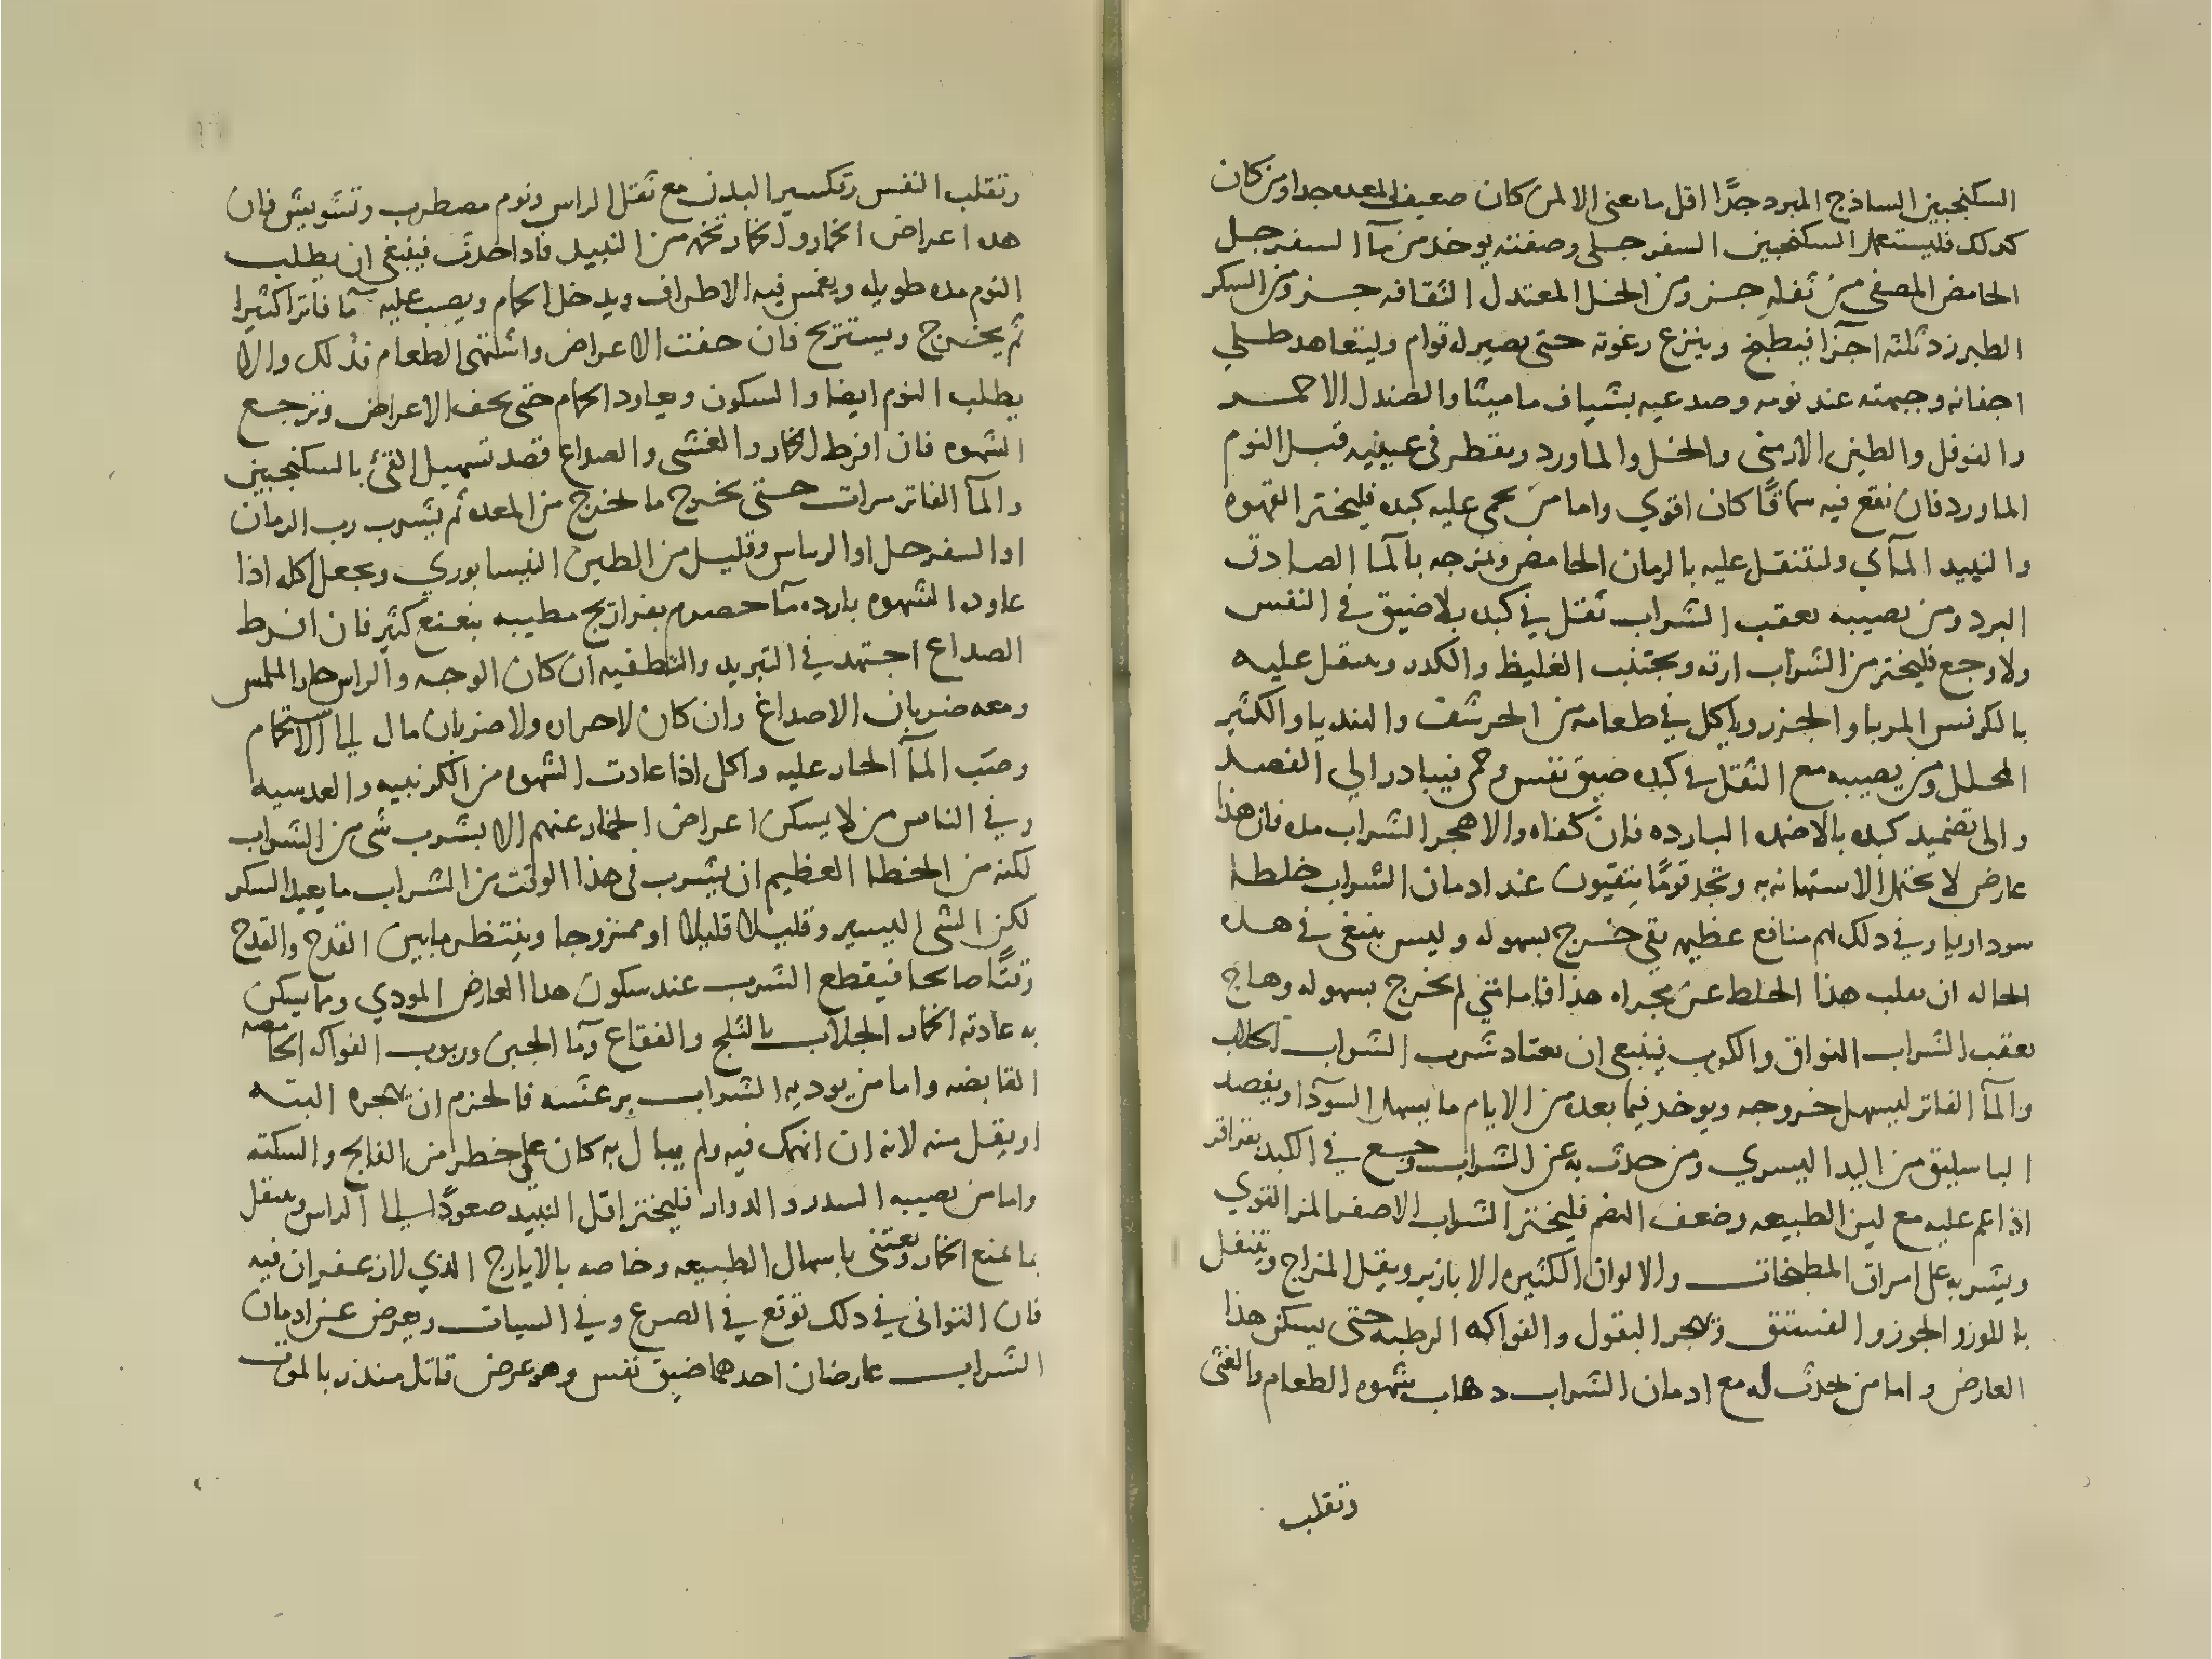 السكنجبين الساذج المبرد جدًا اقل ما يعنى الا لمن كان ضعيف المعده جدا ومن كان
كدلك فليستعمل السكنجبين السفرجلي وصفته يوخد من مآ السفرجل
الحامض المصفي من ثفله جزو من الخل المعتدل الثقافه جزو من السكر
الطبرزد ثلثه اجزآ فيطبخ وينزع رغوته حتى يصير له قوام وليتعاهد طلي
اجفانه وجبهته عند نومه وصدغيه بشياف ماميثا والصندل الاحمر
والفوفل والطين الارمنى والخل والماورد ويقطر فى عينيه قبل النوم
الماورد فان نقع فيه سماقًا كان اقوي واما من يحمى عليه كبده فليختر القهوه
والنبيد المآي ولتنتقل عليه بالرمان الحامض ويمزجه بالمآ الصادق
البرد ومن يصيبه بعقب الشراب ثقل في كبده بلا ضيق في النفس
ولا وجع فليختر من الشراب ارقه ويجتنب الغليظ والكدر ويتنقل عليه
بالكرفس المربا والجزر وياكل في طعامه من الحرشف والهندبا والكثير
المحلل ومن يصيبه مع الثقل في كبده ضيق نفس وحمى فيبادر الي الفصد
والى تضميد كبده بالاضمده البارده فان كفاه والا هجر الشراب مده فان هذا
عارض لا يحتمل الاستهانه به وتجد قومًا يتقيون عند ادمان الشراب خلطا
سوداويا وفي دلك لهم منافع عظيمه بقى خرج بسهوله وليس ينبغى في هده
الحاله ان يقلب هذا الخلط عن مجراه هذا فاما متي لم يخرج بسهوله وهاج
بعقب الشراب الفواق والكرب فينبغى ان يعتاد شرب الشراب الجلاب
والمآ الفاتر ليسهل خروجه ويوخد فيما بعده من الايام ما يسهل السودآ ويفصد
الباسليق من اليد اليسري ومن حدث به عن الشراب وجع في الكبد بقراقر
اذا غم عليه مع لين الطبيعه وضعف الهضم فليختر الشراب الاصفر المز القوي
ويشربه على امراق المطبخات والالوان الكثيره الابازير ويقلل المزاج ويتنقل
باللوز والجوز والفستق ويهجر البقول والفواكه الرطبه حتى يسكن هذا
العارض واما من يحدث له مع ادمان الشراب دهاب شهوه الطعام والغثى
وتقلب
وتقلب النفس وتكسير البدن مع ثقل الراس ونوم مضطرب وتشويش فان
هده اعراض الخمار والخمار تخمه من النبيد فادا حدثت فينبغى ان يطلب
النوم مده طويله ويغمس فيه الاطراف ويدخل الحمام ويصب عليه مآ فاترا كثيرا
ثم يخرج ويستريح فان خفت الاعراض واشتهى الطعام فدلك والا
يطلب النوم ايضا والسكون ويعاود الحمام حتى تخف الاعراض وترجع
الشهوه فان افرط الخمار والغشى والصداع قصد تسهيل القئ بالسكنجبين
والمآ الفاتر مرات حتى يخرج ما يخرج من المعده ثم يشرب رب الرمان
او السفرجل او الريباس وقليل من الطين النيسابوري ويجعل اكله اذا
عاوده الشهوه بارده مآ حصرم بفراريج مطيبه بنعنع كثير فان افرط
الصداع اجتهد في التبريد والتطفيه ان كان الوجه والراس حار الملمس
ومعه ضربان الاصداغ وان كان لا حراره ولا ضربان مال الى الاستحمام
وصب المآ الحار عليه واكل اذا عادت الشهوه من الكرنبيه والعدسيه
وفي الناس من لا يسكن اعراض الخمار عنهم الا بشرب شى من الشراب
لكنه من الخطا العظيم ان يشرب فى هذا الوقت من الشراب ما يعيد السكر
لكن الشى اليسير وقليلا قليلا او ممزوجا وينتظر ما بين القدح والقدح
وقتًا صالحا فيقطع الشرب عند سكون هدا العارض المودي ومما يسكن
به عادته الخمار الجلاب بالثلج والفقاع ومآ الجبن وربوب الفواكه الحامضه
القابضه واما من يوديه الشراب برعشه فالحزم ان يهجره البته
او يقل منه لانه ان انهمك فيه ولم يبال به كان على خطر من الفالج والسكته
واما من يصيبه السدر والدوار فليختر اقل النبيد صعودًا الى الراس ويتنقل
بما يمنع الخمار ويعتنى باسهال الطبيعه وخاصه بالايارج الذي لا زعفران فيه
فان التوانى في دلك توقع في الصرع وفي السبات ويعرض عن ادمان
الشراب عارضان احدهما ضيق نفس وهو عرض قاتل منذر بالموت